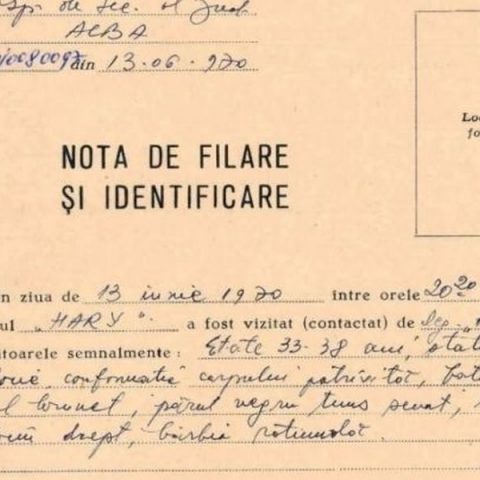 Insp. de Sec. al Jud.
ALBA
0080097 din 13.06.970
Loc
fo
NOTA DE FILARE
ŞI IDENTIFICARE
n ziua de 13 iunie 1970 între orele 20²⁰
ul „HARY" a fost vizitat (contactat) de leg.
itoarele semnalmente: Etate 33-38 ani, stat
conformatia corpului potrivită, fat
brunet, părul negru tuns scurt,
drept, bărbia rotundă.